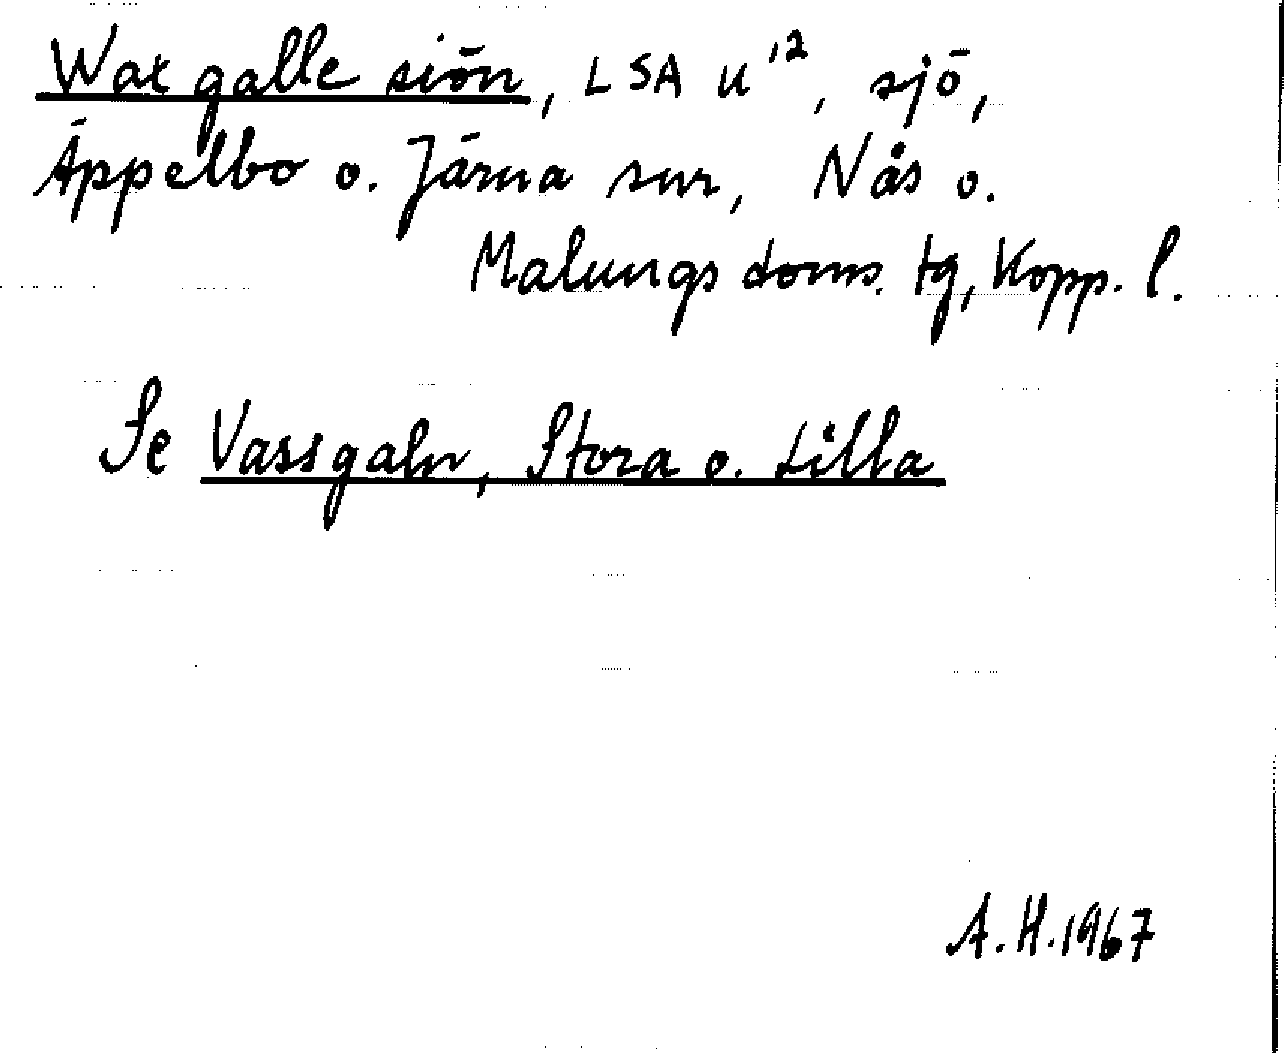 Wax galle siön, LSA U¹², sjö,
Äppelbo o. Järna snr, Nås o.
Malungs doms. tg, Kopp. l.
Se Vassgaln, Stora o. Lilla
A. H. 1967